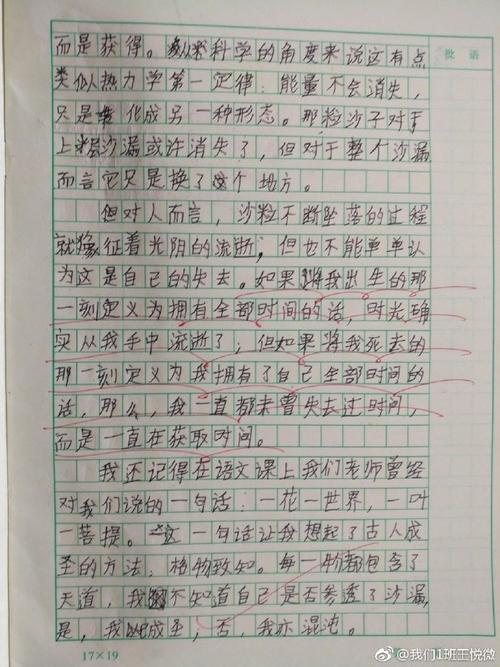 批语
而是获得。从科学的角度来说这有点
类似热力学第一定律：能量不会消失，
只是转化成另一种形态。那粒沙子对于
上层沙漏或许消失了，但对于整个沙漏
而言它只是换了个地方。
但对人而言，沙粒不断坠落的过程
就像征着光阴的流逝；但也不能单单认
为这是自己的失去。如果将我出生的那
一刻定义为拥有全部时间的话，时光确
实从我手中流逝了；但如果将我死去的
那一刻定义为我拥有了自己全部时间的
话，那么，我一直都未曾失去过时间，
而是一直在获取时间。
我还记得在语文课上我们老师曾经
对我们说的一句话：一花一世界，一叶
一菩提。这一句话让我想起了古人成
圣的方法：格物致知。每一物都包含了
天道，我不知道自己是否参透了沙漏，
是，我成圣，否，我亦混沌。
17×19
@我们1班王悦微